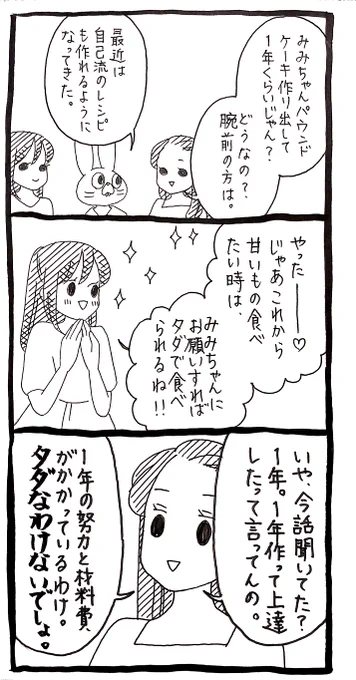 みみちゃんパウンド
ケーキ作り出して
1年くらいじゃん？
どうなの？
腕前の方は。
最近は
自己流のレシピ
も作れるように
なってきた。
やったー♡
じゃあこれから
甘いもの食べ
たい時は、
みみちゃんに
お願いすれば
タダで食べ
られるね!!
いや、今話聞いてた？
1年。1年作って上達
したって言ってんの。
1年の努力と材料費、
がかかっているわけ。
タダなわけないでしょ。